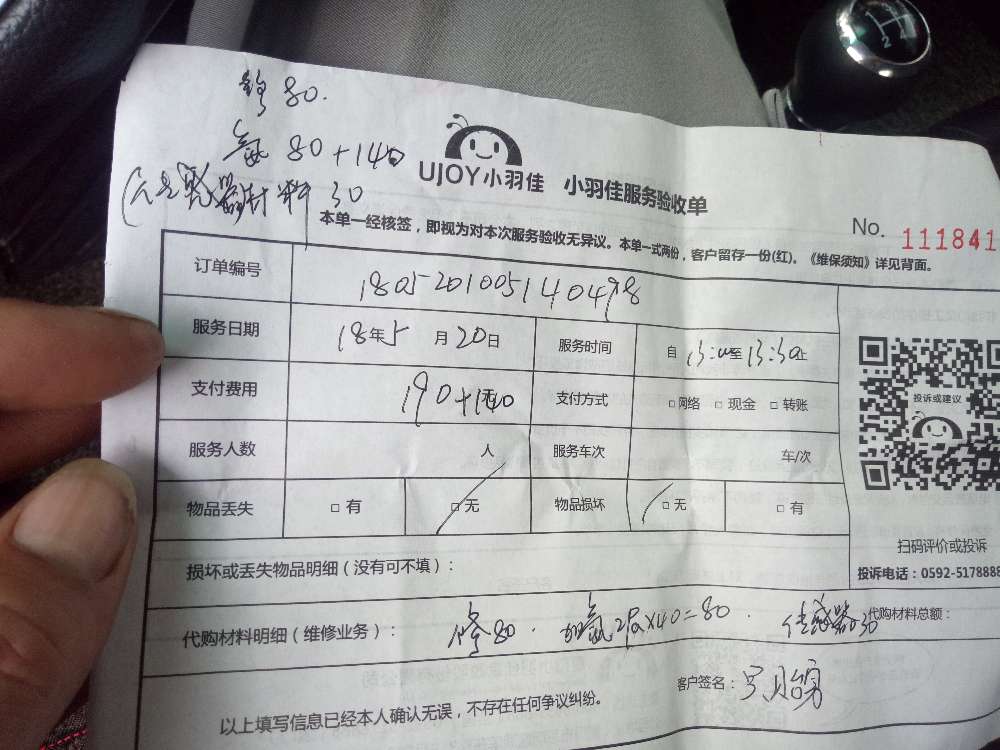 修 80.
氟 80+140
材料 30
UJOY小羽佳 小羽佳服务验收单
本单一经核签，即视为对本次服务验收无异议。本单一式两份，客户留存一份(红)。《维保须知》详见背面。
No. 111841
订单编号 180520100514 0498
服务日期 18年5月20日 服务时间 自 13:00至13:30止
支付费用 190+140 支付方式 □网络 □现金 □转账
服务人数 人 服务车次 车/次
物品丢失 □有 □无 物品损坏 □无 □有
损坏或丢失物品明细（没有可不填）：
代购材料明细（维修业务）： 修80. 加氟2成×40=80. 传感器30 代购材料总额：
客户签名：
以上填写信息已经本人确认无误，不存在任何争议纠纷。
投诉或建议
扫码评价或投诉
投诉电话：0592-5178888